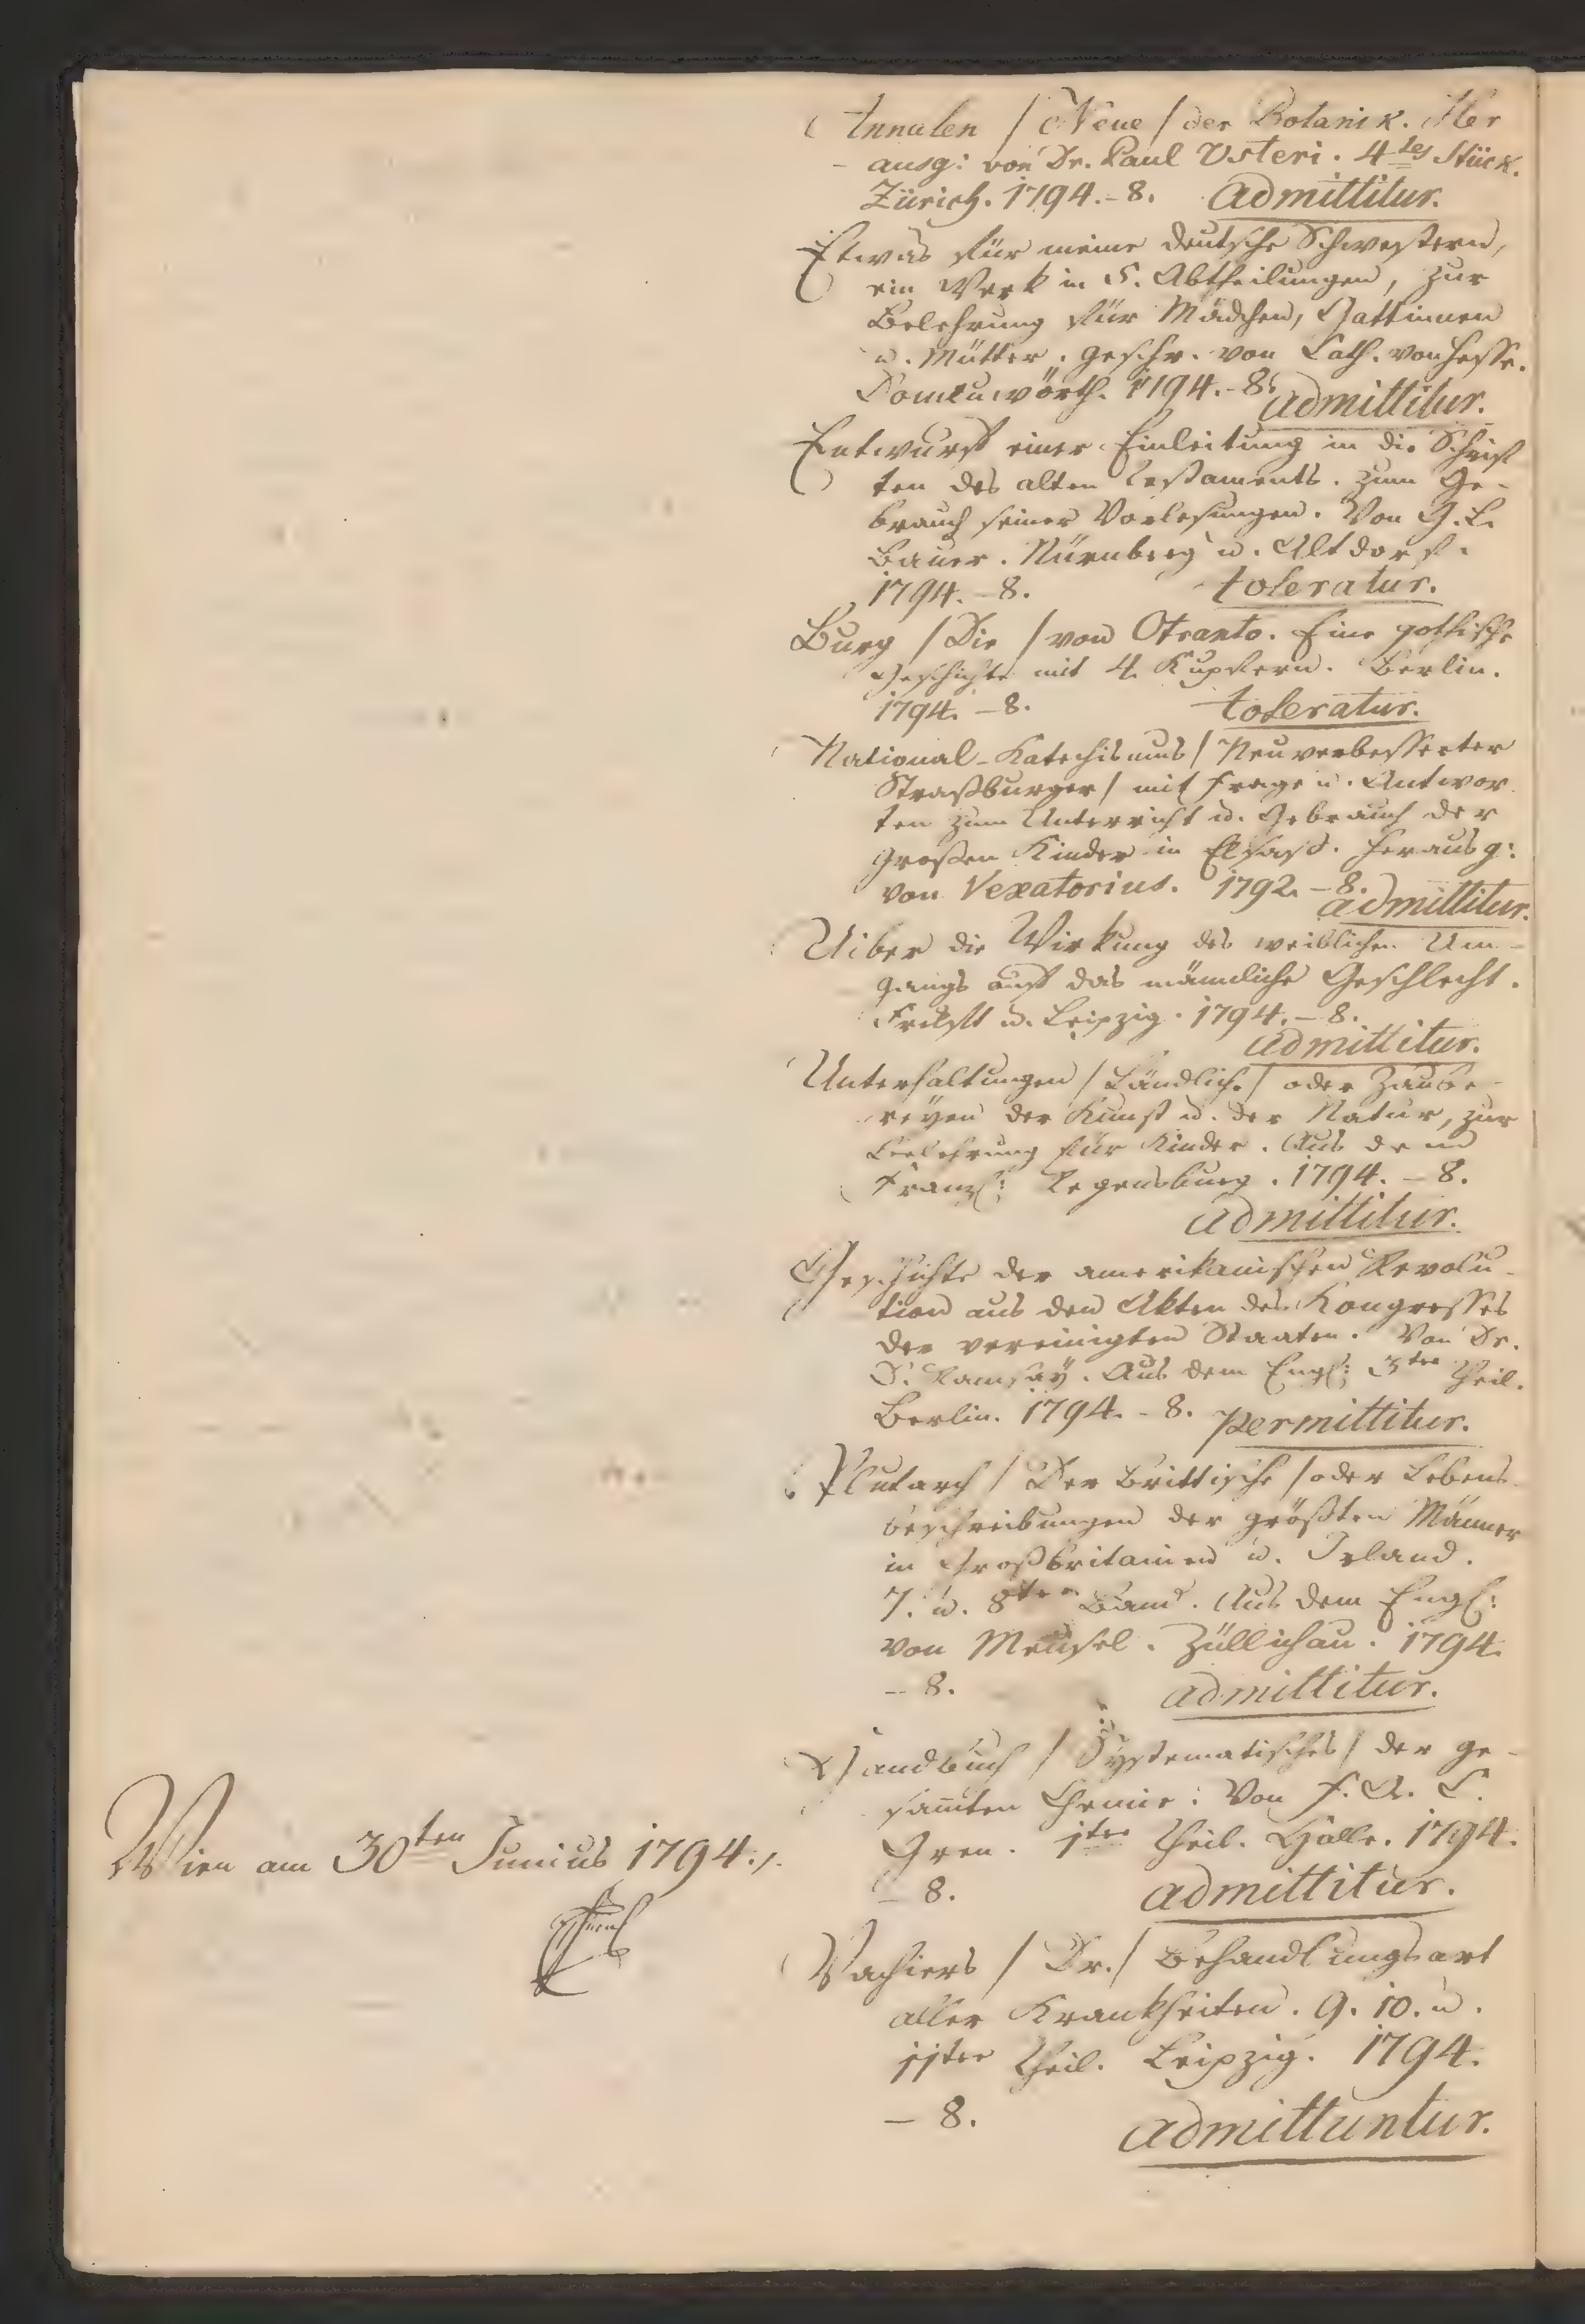 Annalen / Neue / der Botanik. Her
ausg: von Dr. Paul Usteri. 4tes Stück.
Zürich. 1794. - 8. Admittitur.
Etwas für meine deutsche Schwestern,
ein Werk in 5. Abtheilungen, zur
Belehrung für Mädchen, Gattinnen
u. Mütter. geschr. von Cath. von Hesse.
Donauwörth. 1794. - 8. admittitur.
Entwurf einer Einleitung in die Schrif
ten des alten Testaments. zum Ge-
brauch seiner Vorlesungen. Von G. L.
Bauer. Nürnberg u. Altdorf.
1794. - 8. toleratur.
Burg / Die / von Otranto. Eine gothische
Geschichte mit 4. Kupfern. Berlin.
1794. - 8. toleratur.
National-Katechismus / Neuverbesserter
Straßburger / mit Frage u. Antwor
ten zum Unterricht u. Gebrauch der
großen Kinder in Elsaß. Herausg:
von Vexatorius. 1792. - 8. admittitur.
Uiber die Wirkung des weiblichen Um-
gangs auf das männliche Geschlecht.
Frckft u. Leipzig. 1794. - 8.
admittitur.
Unterhaltungen / Ländliche / oder Zaube-
reyen der Kunst u. der Natur, zur
Belehrung für Kinder. Aus dem
Franzs: Regensburg. 1794. - 8.
admittitur.
Geschichte der amerikanischen Revolu-
tion aus den Akten des Kongresses
der vereinigten Staaten. Von Dr.
D. Ramsay. Aus dem Engl: 3ter Theil.
Berlin. 1794. - 8. permittitur.
Plutarch / Der Brittische / oder Lebens-
beschreibungen der größten Männer
in Großbritanien u. Irland.
7. u. 8ter Band. Aus dem Engl:
von Meusel. Züllichau. 1794.
- 8. admittitur.
Handbuch / Systematisches / der ge-
sam̅ten Chemie: Von F. A. C.
Gren. 1ter Theil. Halle. 1794.
- 8. admittitur.
Vachiers / Dr. / Behandlungsart
aller Krankheiten. 9. 10. u.
11ter Theil. Leipzig. 1794.
- 8. admittuntur.
Wien am 30ten Junius 1794.